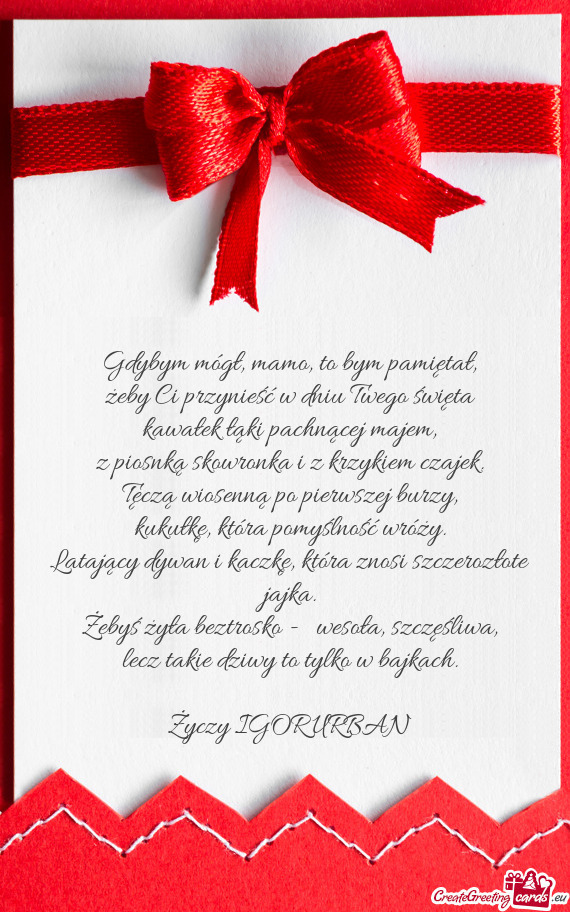 Gdybym mógł, mamo, to bym pamiętał,
żeby Ci przynieść w dniu Twego święta
kawałek łąki pachnącej majem,
z piosnką skowronka i z krzykiem czajek.
Tęczą wiosenną po pierwszej burzy,
kukułkę, która pomyślność wróży.
Latający dywan i kaczkę, która znosi szczerozłote
jajka.
Żebyś żyła beztrosko - wesoła, szczęśliwa,
lecz takie dziwy to tylko w bajkach.
Życzy IGORURBAN
CreateGreeting cards .eu